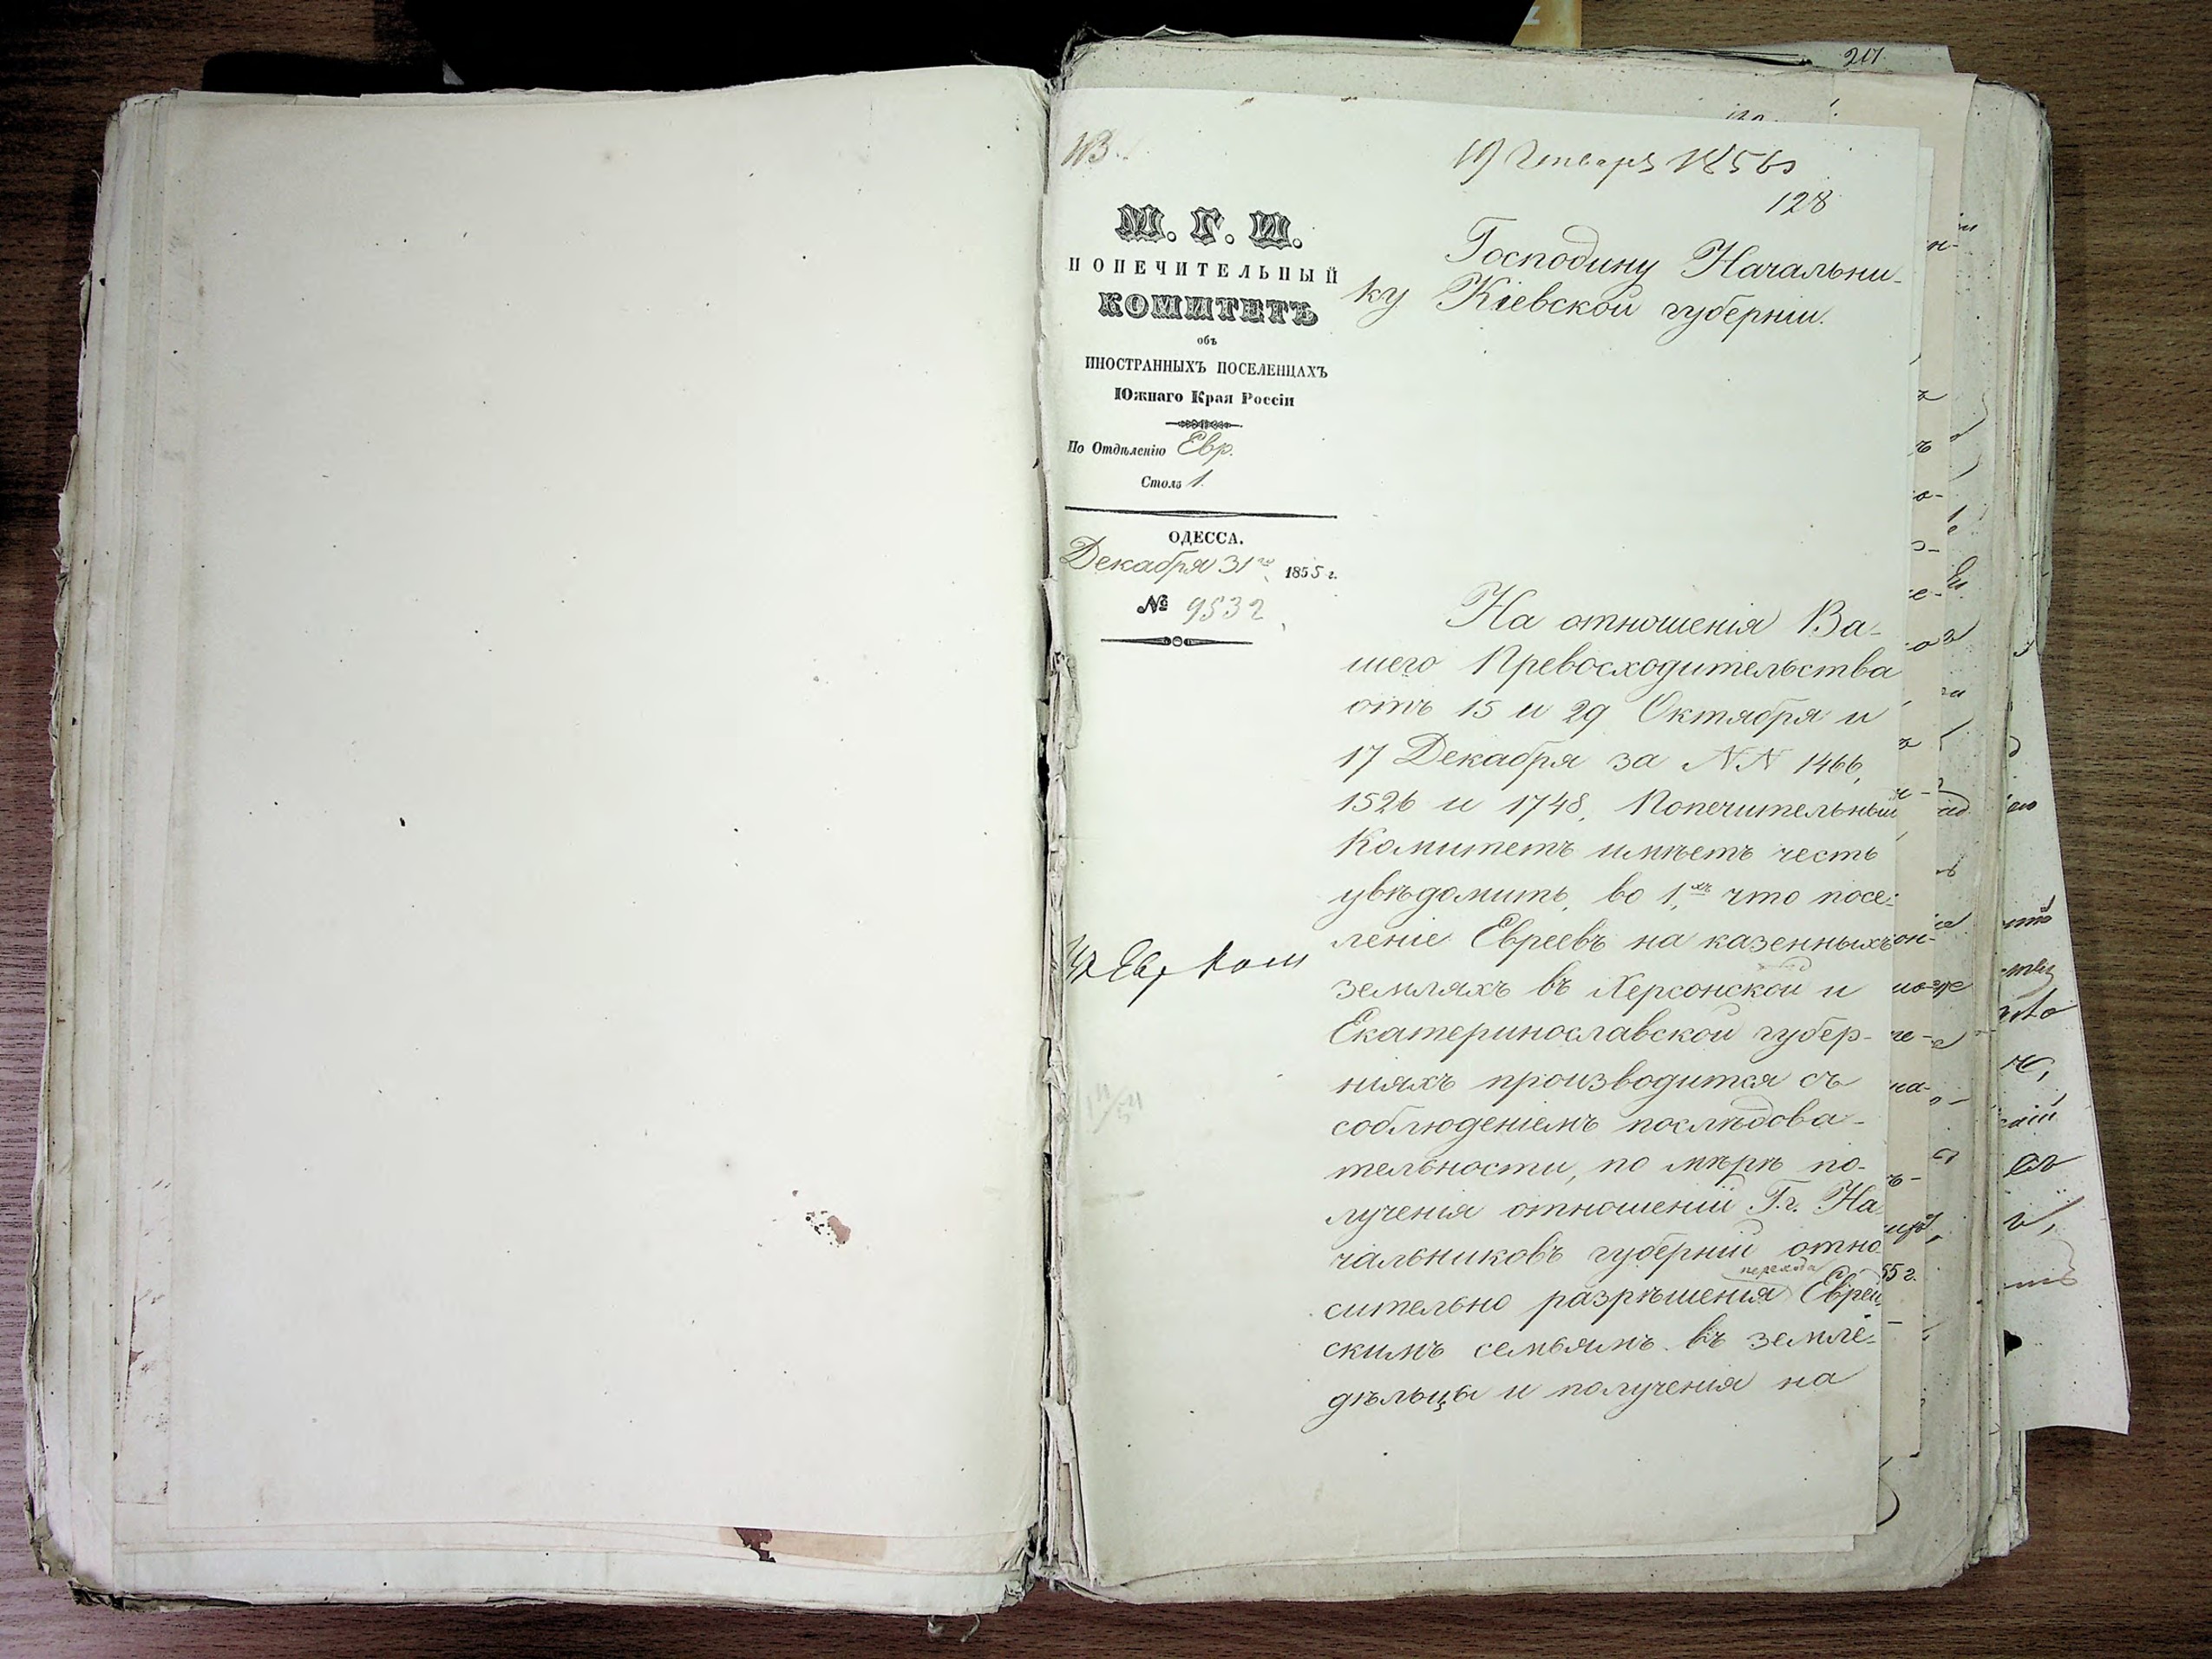 217
19 Января 1856 г
128
М. Г. И.
ПОПЕЧИТЕЛЬНЫЙ
КОМИТЕТЪ
объ
ИНОСТРАННЫХЪ ПОСЕЛЕНЦАХЪ
Южнаго Края Россіи
По Отдѣленію Евр.
Столъ 1.
ОДЕССА.
Декабря 31го 1855 г.
№ 9532
Господину Начальни-
ку Кіевской губерніи.
На отношенія Ва-
шего Превосходительства
отъ 15 и 29 Октября и
17 Декабря за NN 1466,
1526 и 1748, Попечительный
Комитетъ имѣетъ честь
увѣдомить, во 1.хъ что посе-
леніе Евреевъ на казенныхъ
земляхъ въ Херсонской и
Екатеринославской губер-
ніяхъ производится съ
соблюденіемъ послѣдова-
тельности, по мѣрѣ по-
лученія отношеній Г.г. На
чальниковъ губерній отно
сительно разрѣшенія перехода Еврей
скимъ семьямъ въ земле-
дѣльцы и полученія на
55 г.